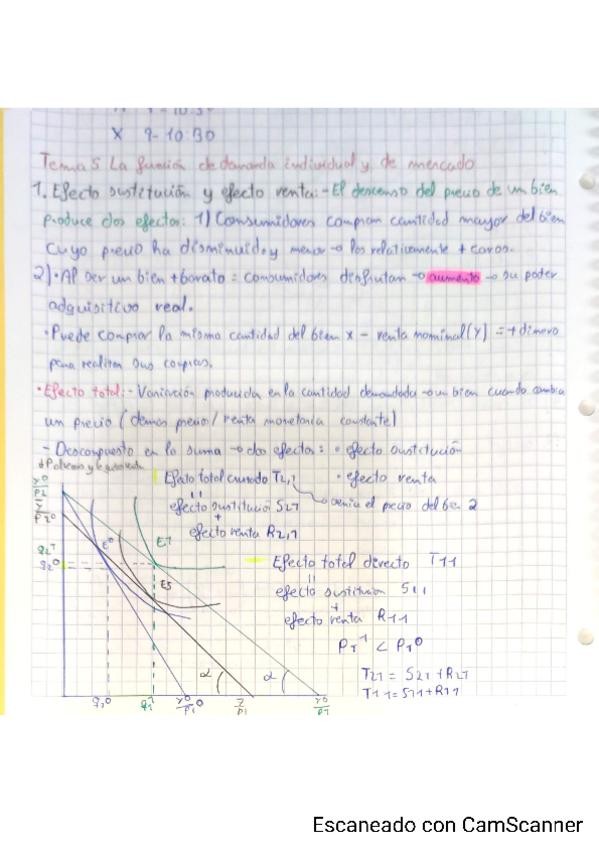 X 9-10:30
Tema 5 La función de demanda individual y de mercado
1. Efecto sustitución y efecto renta:-El descenso del precio de un bien
produce dos efectos: 1) Consumidores compran cantidad mayor del bien
cuyo precio ha disminuido y menor → los relativamente + caros.
2)·Al ser un bien + barato = consumidores disfrutan → aumento → su poder
adquisitivo real.
·Puede comprar la misma cantidad del bien x - renta nominal (Y) = + dinero
para realizar sus compras.
·Efecto total:- Variación producida en la cantidad demandada → un bien cuando cambia
un precio (demás precio/renta monetaria constante)
- Descompuesto en la suma → dos efectos: · efecto sustitución
· efecto renta
Efecto total cruzado T2,1
efecto sustitución S21
+
efecto renta R2,1
el precio del bien 2
Efecto total directo T11
=
efecto sustitución S11
+
efecto renta R11
P1¹ < P1⁰
T21 = S21 + R21
T11 = S11 + R11
Y⁰
P2
Y
P2⁰
q2¹
q2⁰
E⁰
E1
ES
α
α
q1⁰
q1¹
Y⁰
P1⁰
Y⁰
P1¹
Escaneado con CamScanner